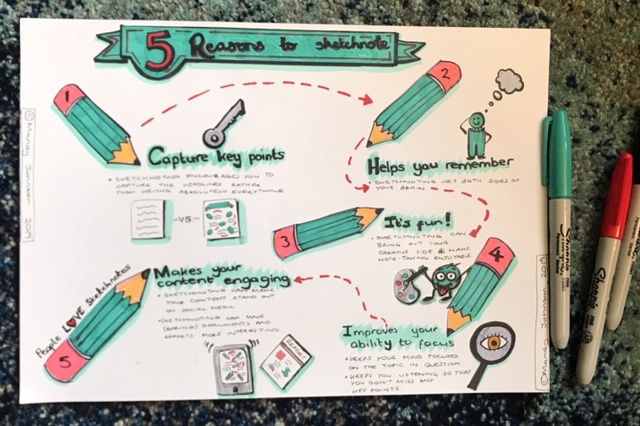 5 Reasons to sketchnote
1
Capture key points
• SKETCHNOTING ENCOURAGES YOU TO
CAPTURE THE HEADLINES RATHER
THAN WRITING ABSOLUTELY EVERYTHING
-VS-
2
Helps you remember
• SKETCHNOTING USES BOTH SIDES OF
YOUR BRAIN
3
It's fun!
• SKETCHNOTING CAN
BRING OUT YOUR
CREATIVE SIDE & MAKE
NOTE-TAKING ENJOYABLE
4
Improves your
ability to focus
• KEEPS YOUR MIND FOCUSED
ON THE TOPIC IN QUESTION
• KEEPS YOU LISTENING SO THAT
YOU DON'T MISS ANY
KEY POINTS.
5
People LOVE Sketchnotes
Makes your
content engaging
• SKETCHNOTING CAN MAKE
YOUR CONTENT STAND OUT
ON SOCIAL MEDIA
• SKETCHNOTING CAN MAKE
(BORING) DOCUMENTS AND
REPORTS MORE INTERESTING
REPORT
© Mandy Johnson
© Mandy Johnson
Sharpie
Sharpie